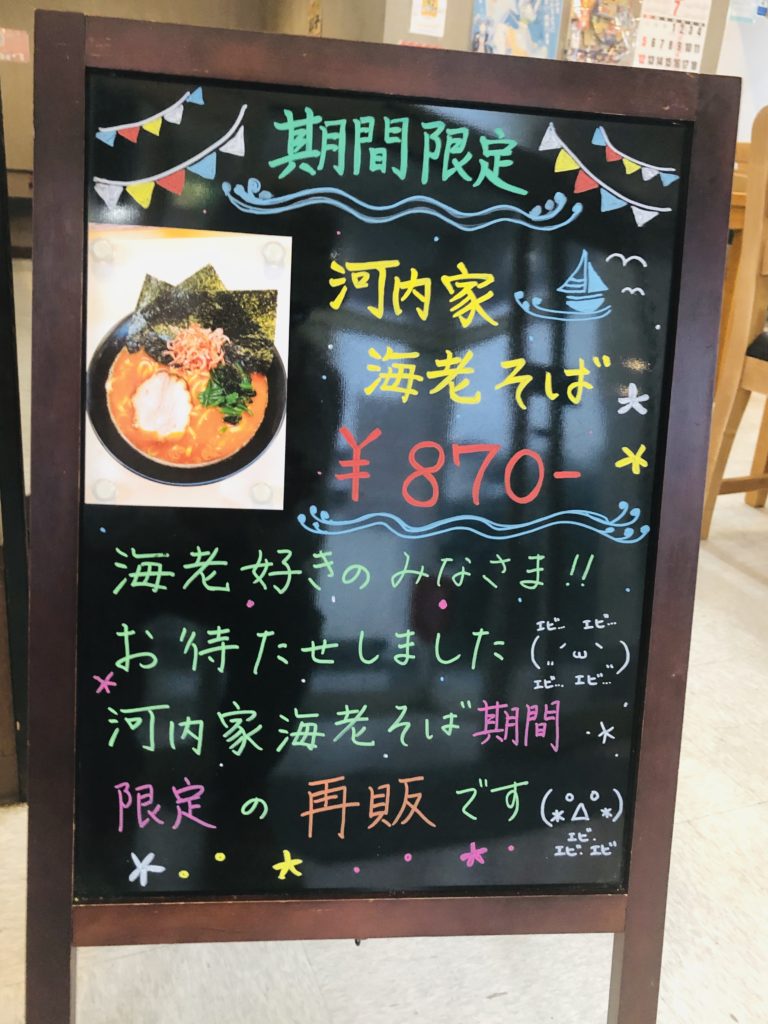 期間限定
河内家
海老そば
¥870-
海老好きのみなさま!!
お待たせしました
エビ… エビ…
(´ω`)
エビ… エビ…
河内家海老そば期間
限定の再販です
エビ.
エビ. エビ
7